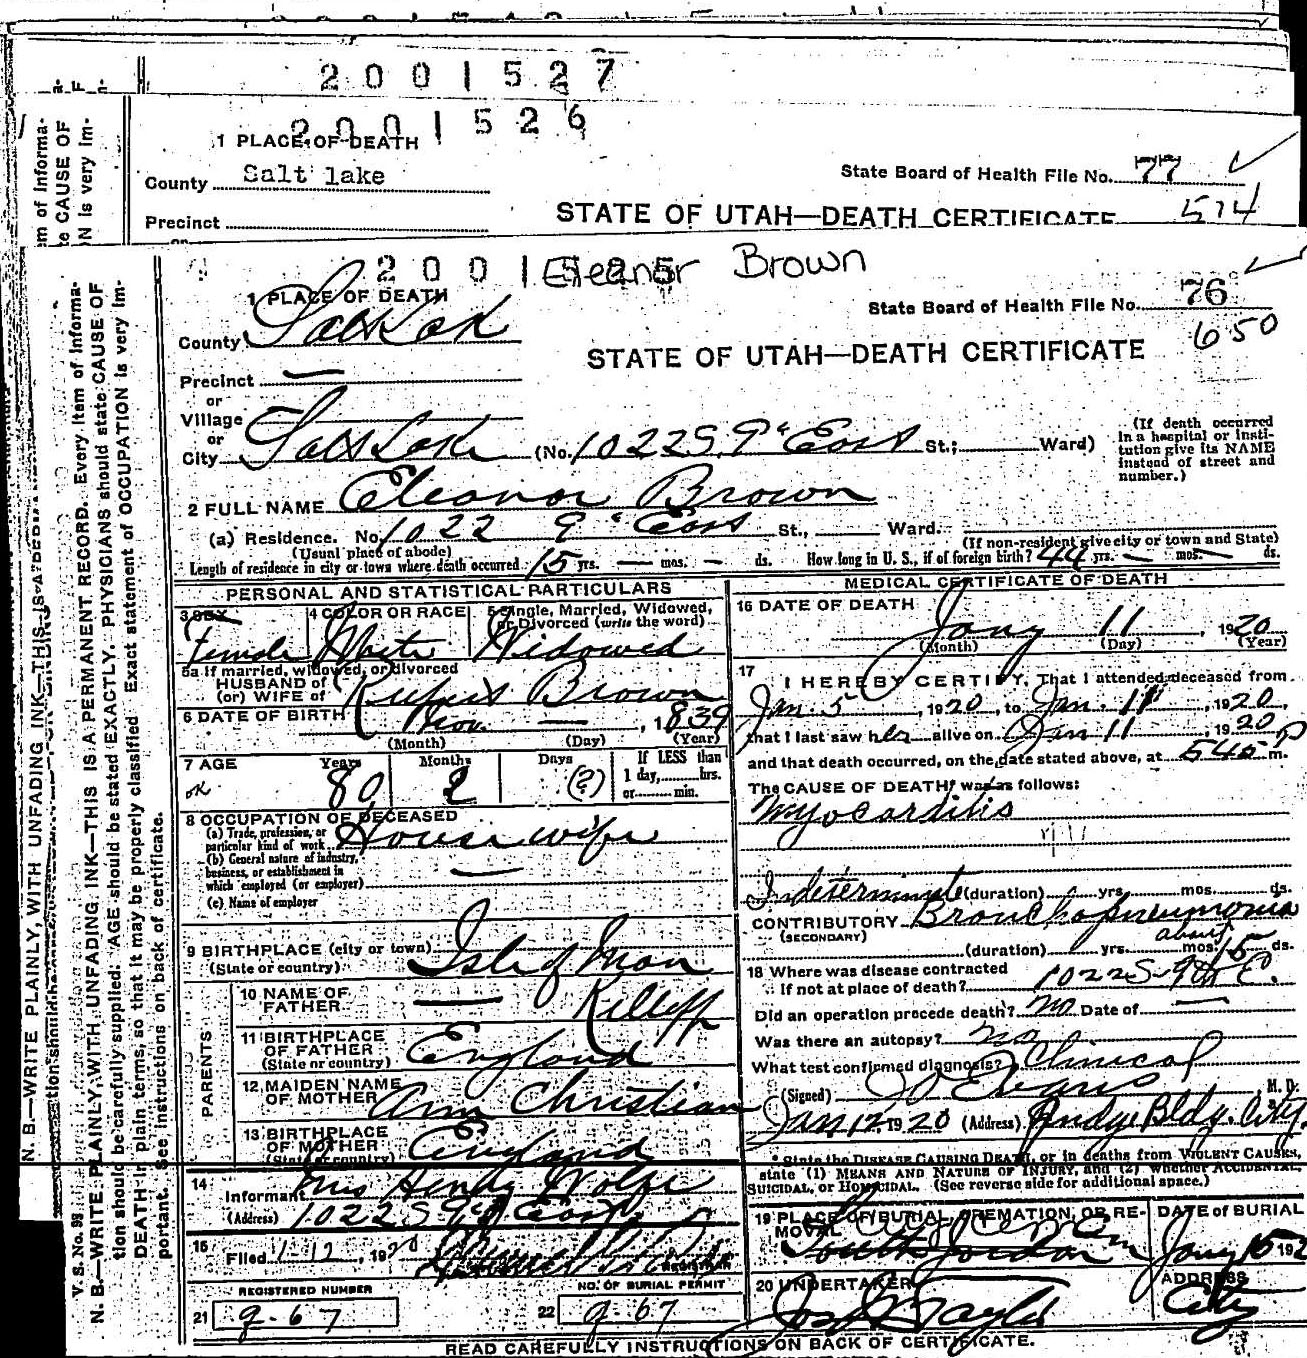 2001527
2001526
1 PLACE OF DEATH
County Salt lake
State Board of Health File No. 77
574
Precinct
STATE OF UTAH—DEATH CERTIFICATE
2001525
Eleanor Brown
1 PLACE OF DEATH
State Board of Health File No. 76
650
County Salt Lake
STATE OF UTAH—DEATH CERTIFICATE
Precinct —
or
Village
or
City Salt Lake (No. 1022 S. 9" East St.; Ward)
(If death occurred in a hospital or institution give its NAME instead of street and number.)
2 FULL NAME Eleanor Brown
(a) Residence. No. 1022 9" East St., Ward.
(Usual place of abode) (If non-resident give city or town and State)
Length of residence in city or town where death occurred 15 yrs. — mos. — ds. How long in U. S., if of foreign birth? 44 yrs. — mos. — ds.
PERSONAL AND STATISTICAL PARTICULARS
3 SEX Female
4 COLOR OR RACE White
5 Single, Married, Widowed, or Divorced (write the word) Widowed
5a If married, widowed, or divorced
HUSBAND of
(or) WIFE of Rufus Brown
6 DATE OF BIRTH Nov. — , 1839
(Month) (Day) (Year)
7 AGE Years Months Days If LESS than
1 day, hrs.
or min.
ok 80 2 (?)
8 OCCUPATION OF DECEASED
(a) Trade, profession, or
particular kind of work House wife
(b) General nature of industry,
business, or establishment in
which employed (or employer) —
(c) Name of employer
9 BIRTHPLACE (city or town)
(State or country) Isle of Man
PARENTS
10 NAME OF
FATHER —
11 BIRTHPLACE
OF FATHER
(State or country) England
12 MAIDEN NAME
OF MOTHER Ann Christian
13 BIRTHPLACE
OF MOTHER
(State or country) England
14
Informant Mrs Henry Wolfe
(Address) 1022 S 9th East
15
Filed 1-12, 1920
REGISTRAR
REGISTERED NUMBER
21 g-67
NO. OF BURIAL PERMIT
22 g-67
MEDICAL CERTIFICATE OF DEATH
16 DATE OF DEATH
Jany 11, 1920
(Month) (Day) (Year)
17
I HEREBY CERTIFY, That I attended deceased from
Jan. 5, 1920, to Jan. 11, 1920,
that I last saw her alive on Jan 11, 1920
and that death occurred, on the date stated above, at 545 P m.
The CAUSE OF DEATH was as follows:
Myocarditis
Indeterminate (duration) yrs. mos. ds.
CONTRIBUTORY Bronchopneumonia
(SECONDARY)
(duration) yrs. mos. about 15 ds.
18 Where was disease contracted
if not at place of death? 1022 S-9th E.
Did an operation precede death? no Date of —
Was there an autopsy? no
What test confirmed diagnosis? Clinical
(Signed) Evans M. D.
Jan 12, 1920 (Address) Judge Bldg. City.
* State the DISEASE CAUSING DEATH, or in deaths from VIOLENT CAUSES,
state (1) MEANS AND NATURE OF INJURY, and (2) whether ACCIDENTAL,
SUICIDAL, or HOMICIDAL. (See reverse side for additional space.)
19 PLACE OF BURIAL, CREMATION, OR REMOVAL
South Jordan
DATE OF BURIAL
Jany 15 192
20 UNDERTAKER
Taylor
ADDRESS
City
READ CAREFULLY INSTRUCTIONS ON BACK OF CERTIFICATE.
V. S. No. 98
N. B.—WRITE PLAINLY, WITH UNFADING INK—THIS IS A PERMANENT RECORD. Every item of information should be carefully supplied. AGE should be stated EXACTLY. PHYSICIANS should state CAUSE OF DEATH in plain terms, so that it may be properly classified. Exact statement of OCCUPATION is very important. See instructions on back of certificate.
N. B.—WRITE PLAINLY, WITH UNFADING INK—THIS IS A